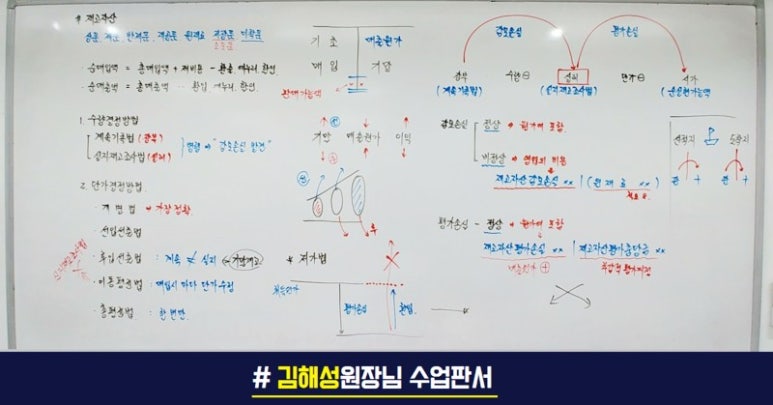 * 재고자산
상품, 제품, 반제품, 재공품, 원재료, 저장품, 미착품
소모품
· 순매입액 = 총매입액 + 제비용 - 환출, 매누리, 할인
· 순매출액 = 총매출액 - 환입, 매누리, 할인
기초 매출원가
매입 기말
판매가능액
1. 수량결정방법
계속기록법 (장부)
실지재고조사법 (실지)
병행 → "감모손실 발견"
기말 매출원가 이익
2. 단가결정방법
· 개별법 → 가장 정확
· 선입선출법
· 후입선출법 : 계속 ≠ 실지 기말재고
실지재고조사법
· 이동평균법 : 매입시 마다 단가수정
· 총평균법 : 한번만
* 저가법
취득원가
평가손실 환입
감모손실 평가손실
장부 수량 ⊖ 실지 단가 ⊖ 시가
(계속기록법) (실지재고조사법) (순실현가능액)
감모손실
정상 → 원가에 포함
비정상 → 영업외 비용
재고자산감모손실 xx | (원재료 xx)
평가손실 - 정상 → 원가에 포함
재고자산평가손실 xx | 재고자산평가충당금 xx
매출원가 ⊕ 차감적 평가계정
선적지 도착지
판 + 판 +
# 김해성원장님 수업판서